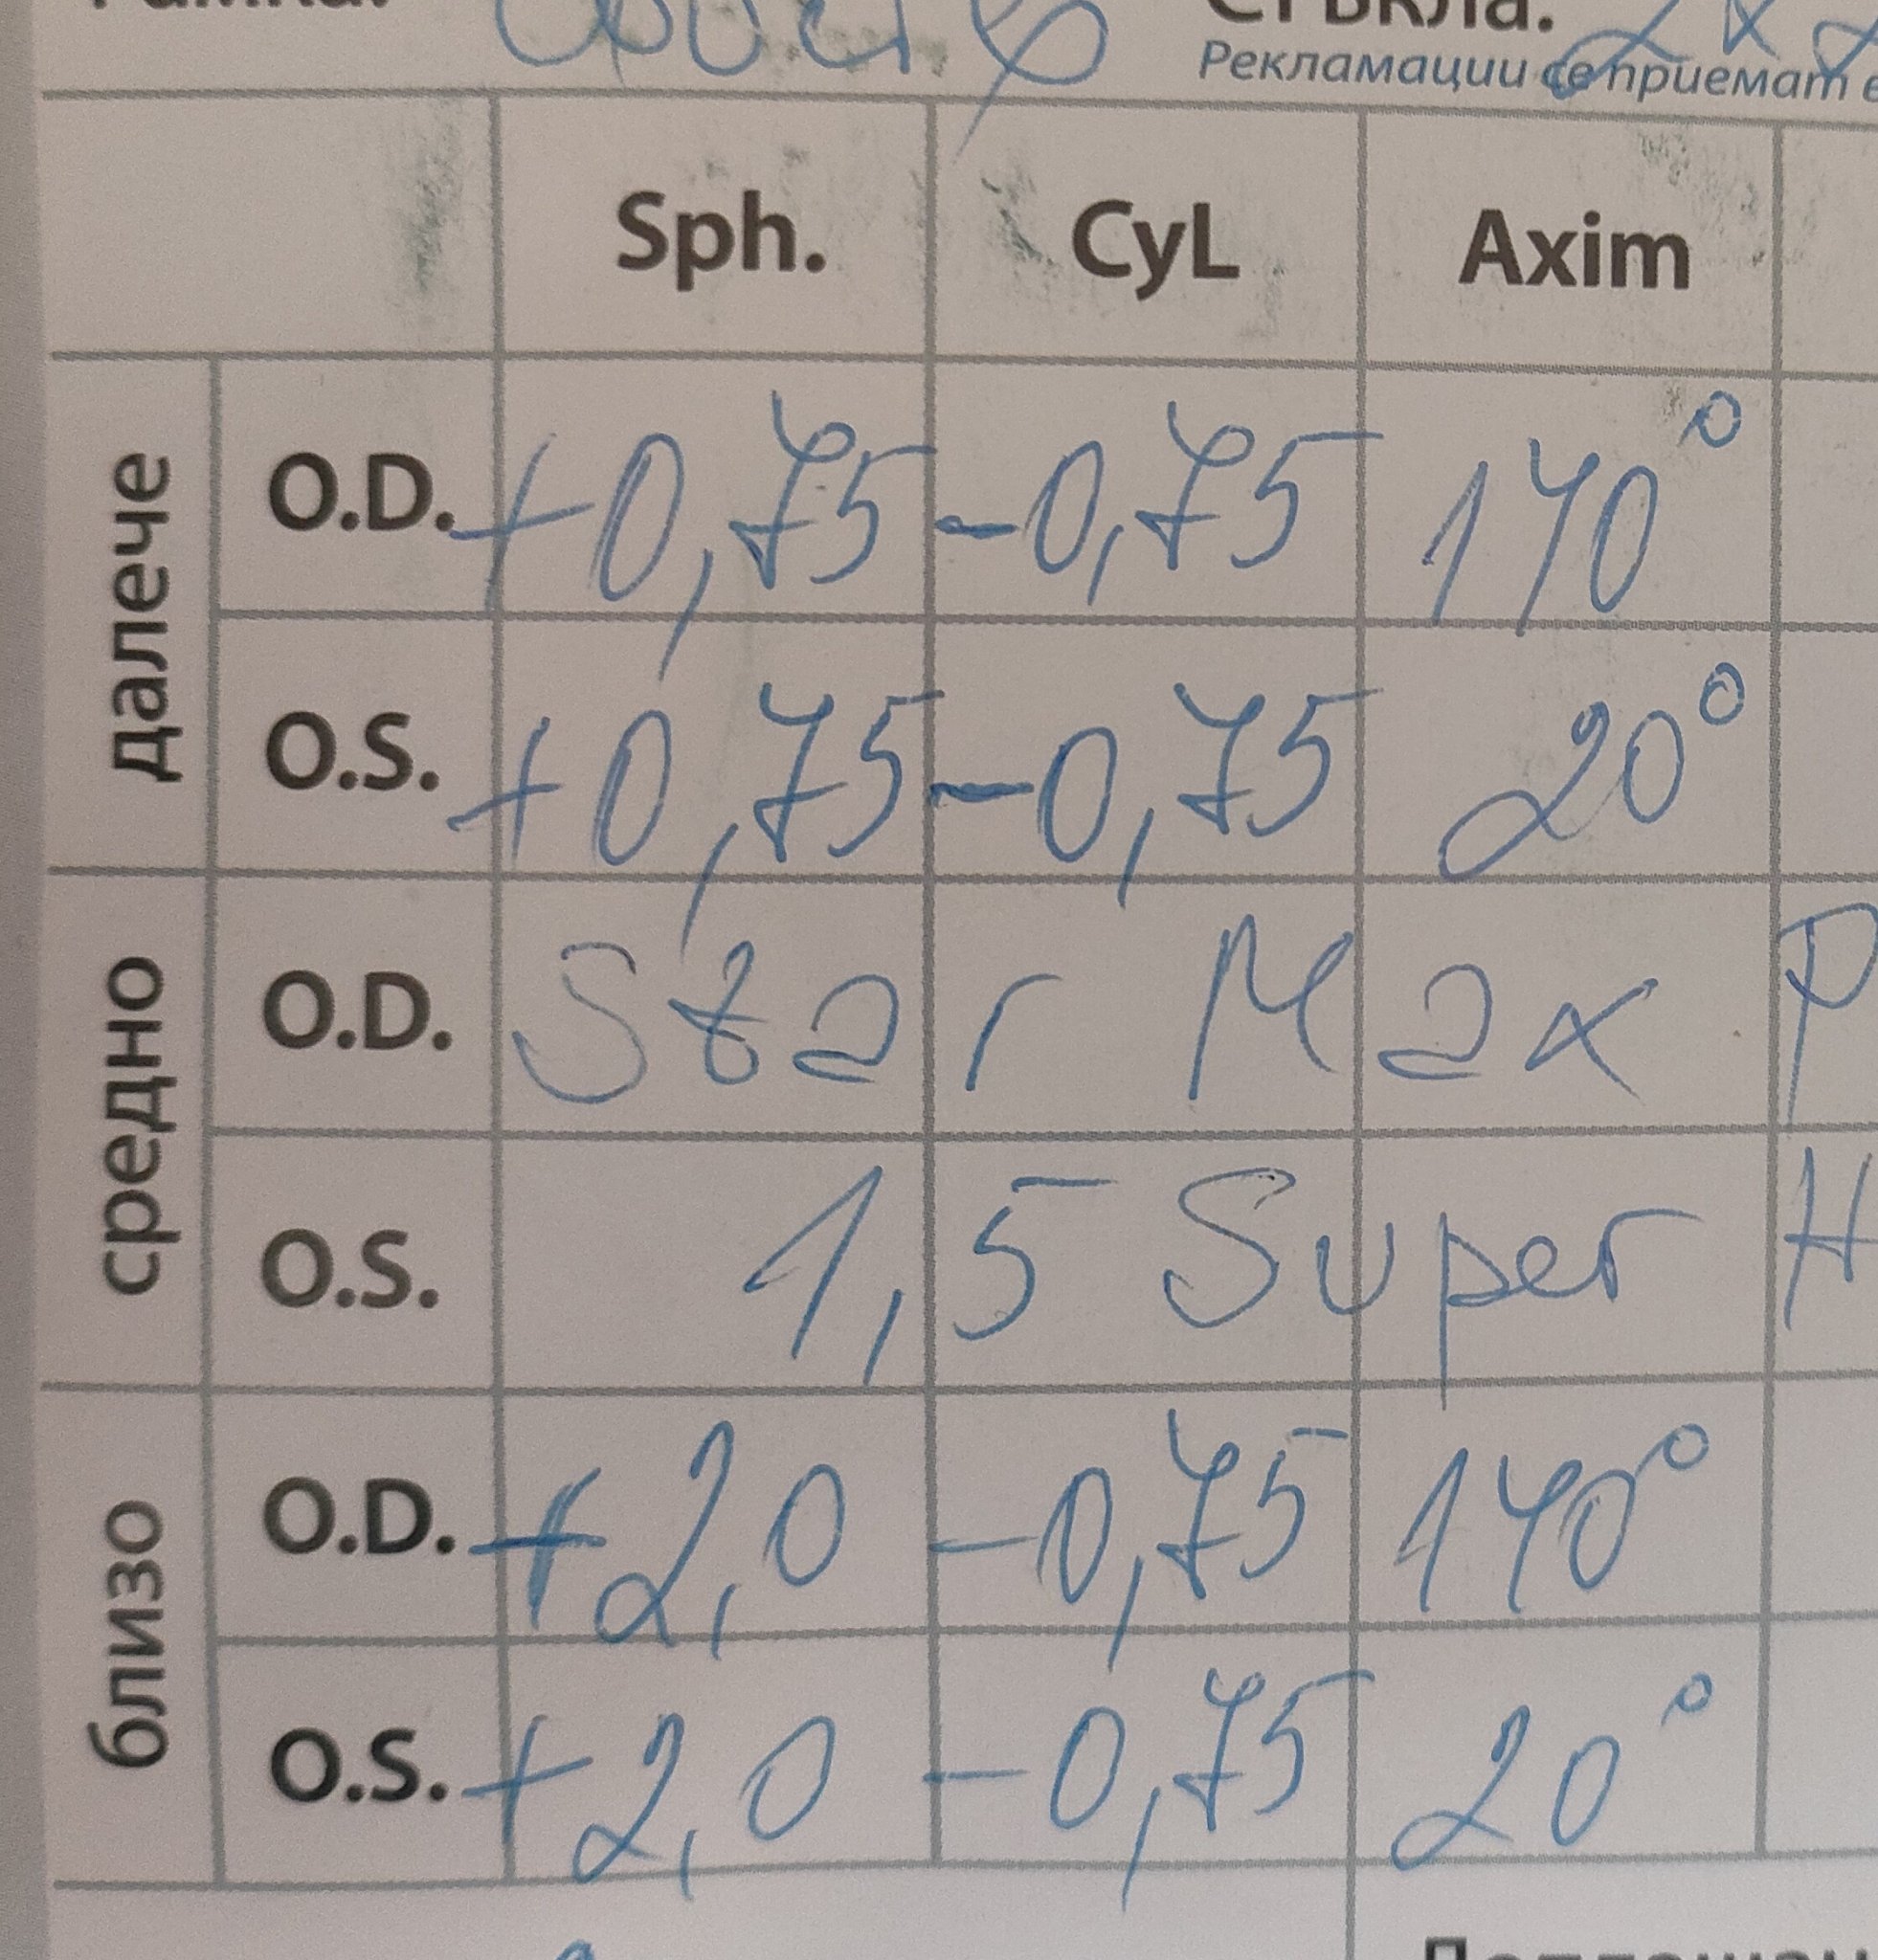 СТЪКЛА:
Рекламации се приемат
Sph. CyL Axim
далече
O.D. +0,75 -0,75 140°
O.S. +0,75 -0,75 20°
средно
O.D. Star Max P
O.S. 1,5 Super H
близо
O.D. +2,0 -0,75 140°
O.S. +2,0 -0,75 20°